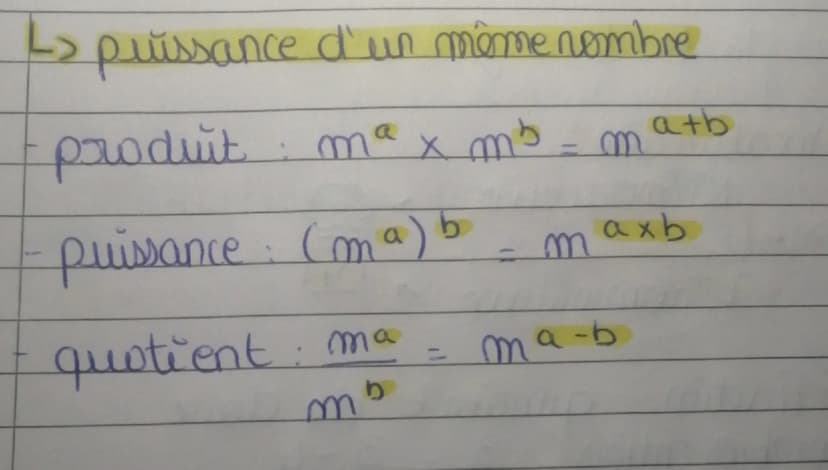 ↳ puissance d'un même nombre
- produit : m^a × m^b = m^(a+b)
- puissance : (m^a)^b = m^(a×b)
- quotient : m^a/m^b = m^(a-b)